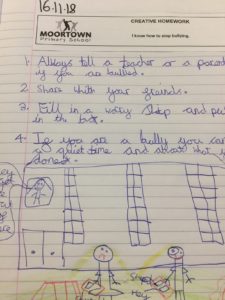 16.11.18
MOORTOWN
Primary School
CREATIVE HOMEWORK
I know how to stop bullying.
1. Always tell a teacher or a
if you are bullied.
2. Share with your friends.
3. Fill in a worry slip and
in the box.
4. If you are a bully you
a quiet time and about what
done.